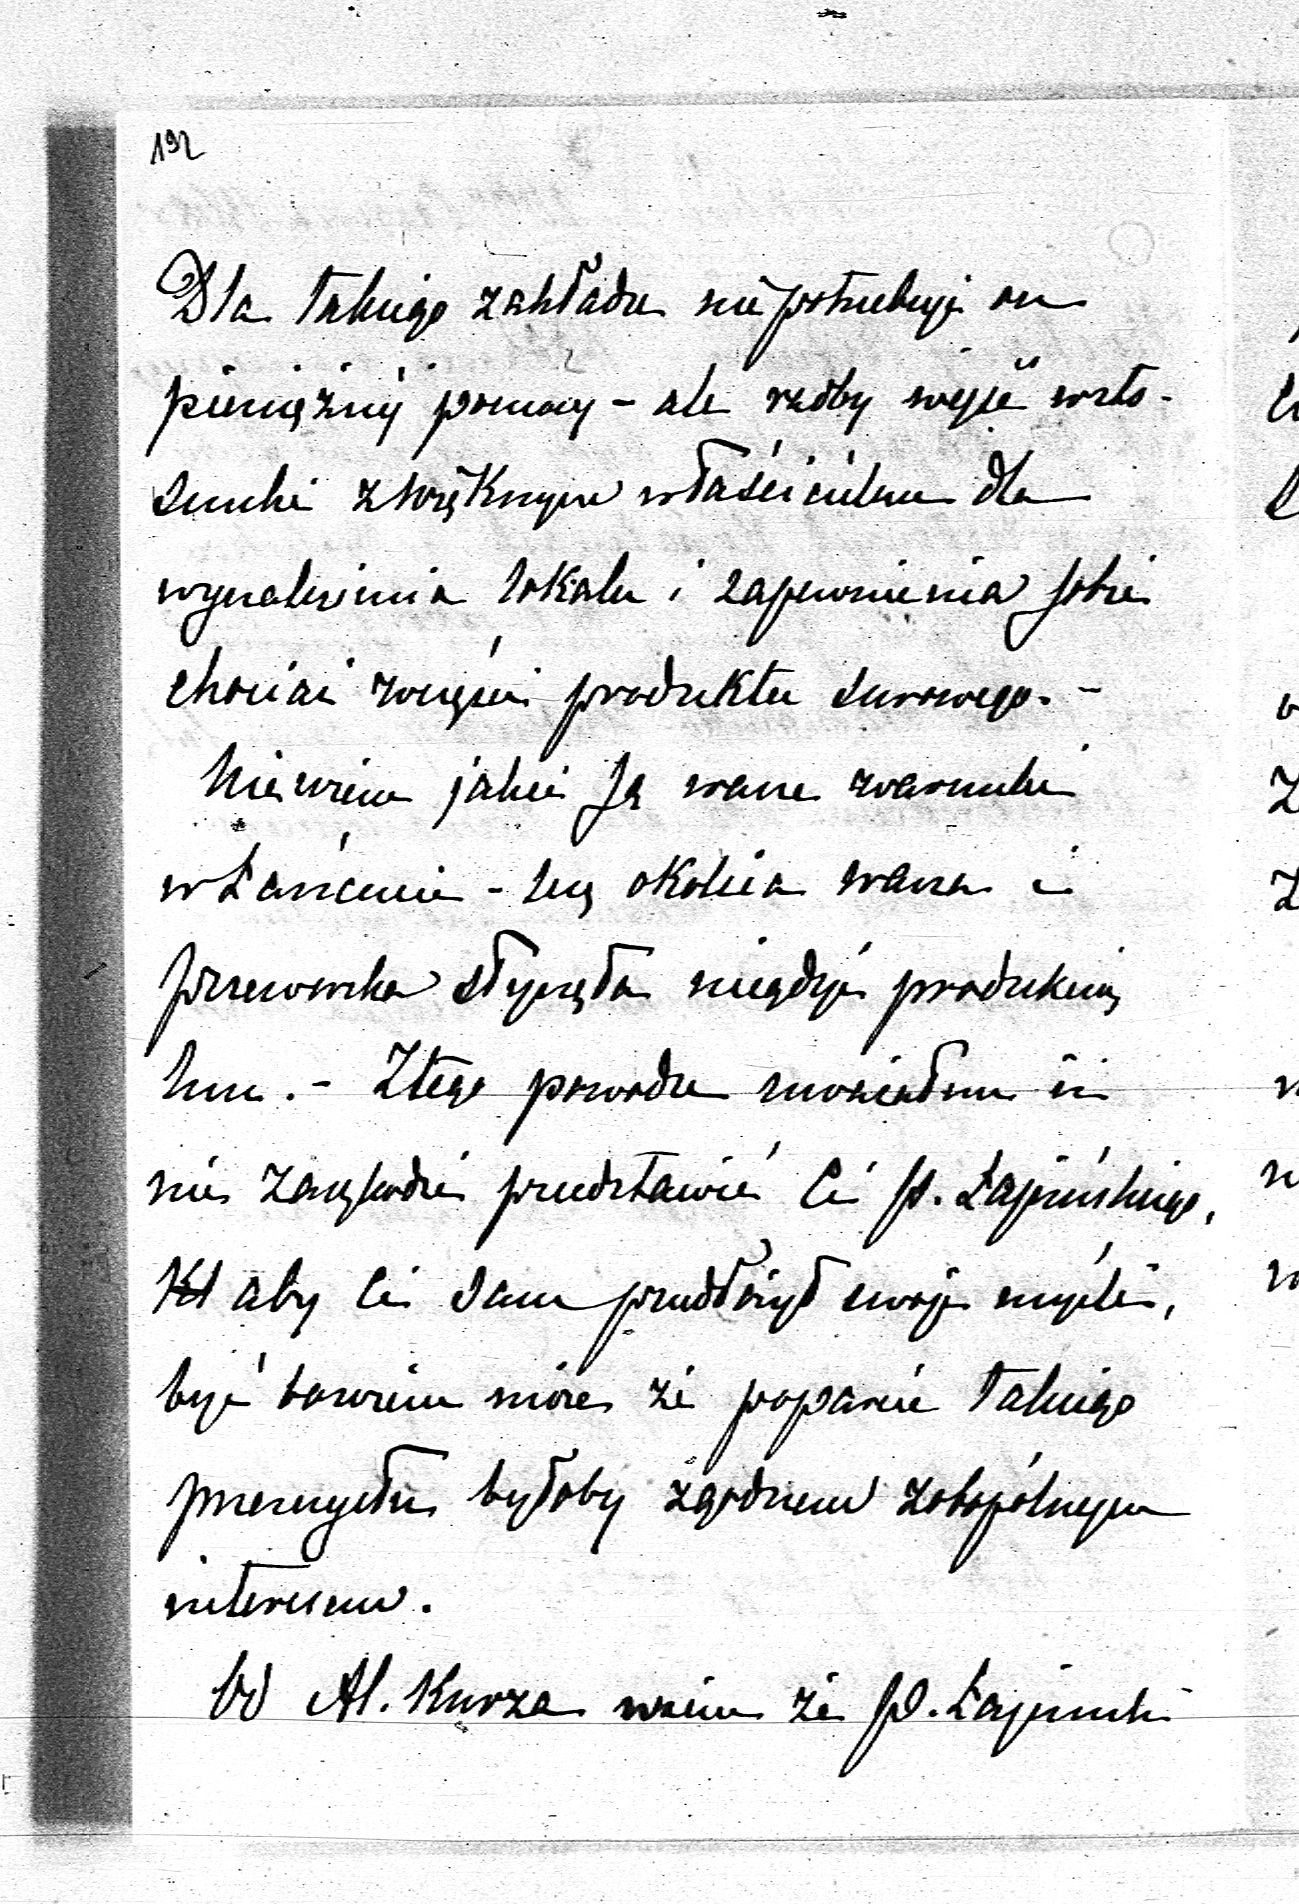 192
Dla takiego zakładu nie potrzebuje on
pieniężnéj pomocy – ale radby wejść w sto-
sunki z większym właścicielem dla
wynalezienia lokalu i zapewnienia sobie
chociaż części produktu surowego. –
Nie wiem jakie są wasze warunki
w Łańcucie – lecz okolica wasza i
Przeworska słynęła niegdyś produkcią
lnu. – Z tego powodu uważałem iż
nie zaszkodzi przedstawić Ci p. Łapińskiego,
aby Ci sam przedłożył swoje myśli,
być bowiem może że poparcie takiego
przemysłu byłoby zgodnem z obopólnym
interesem.
Od Al. Kurza wiem że p. Łapiński